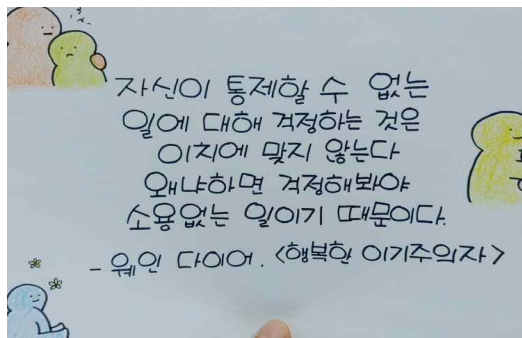 자신이 통제할 수 없는
일에 대해 걱정하는 것은
이치에 맞지 않는다
왜냐하면 걱정해봐야
소용없는 일이기 때문이다.
- 웨인 다이어. <행복한 이기주의자>